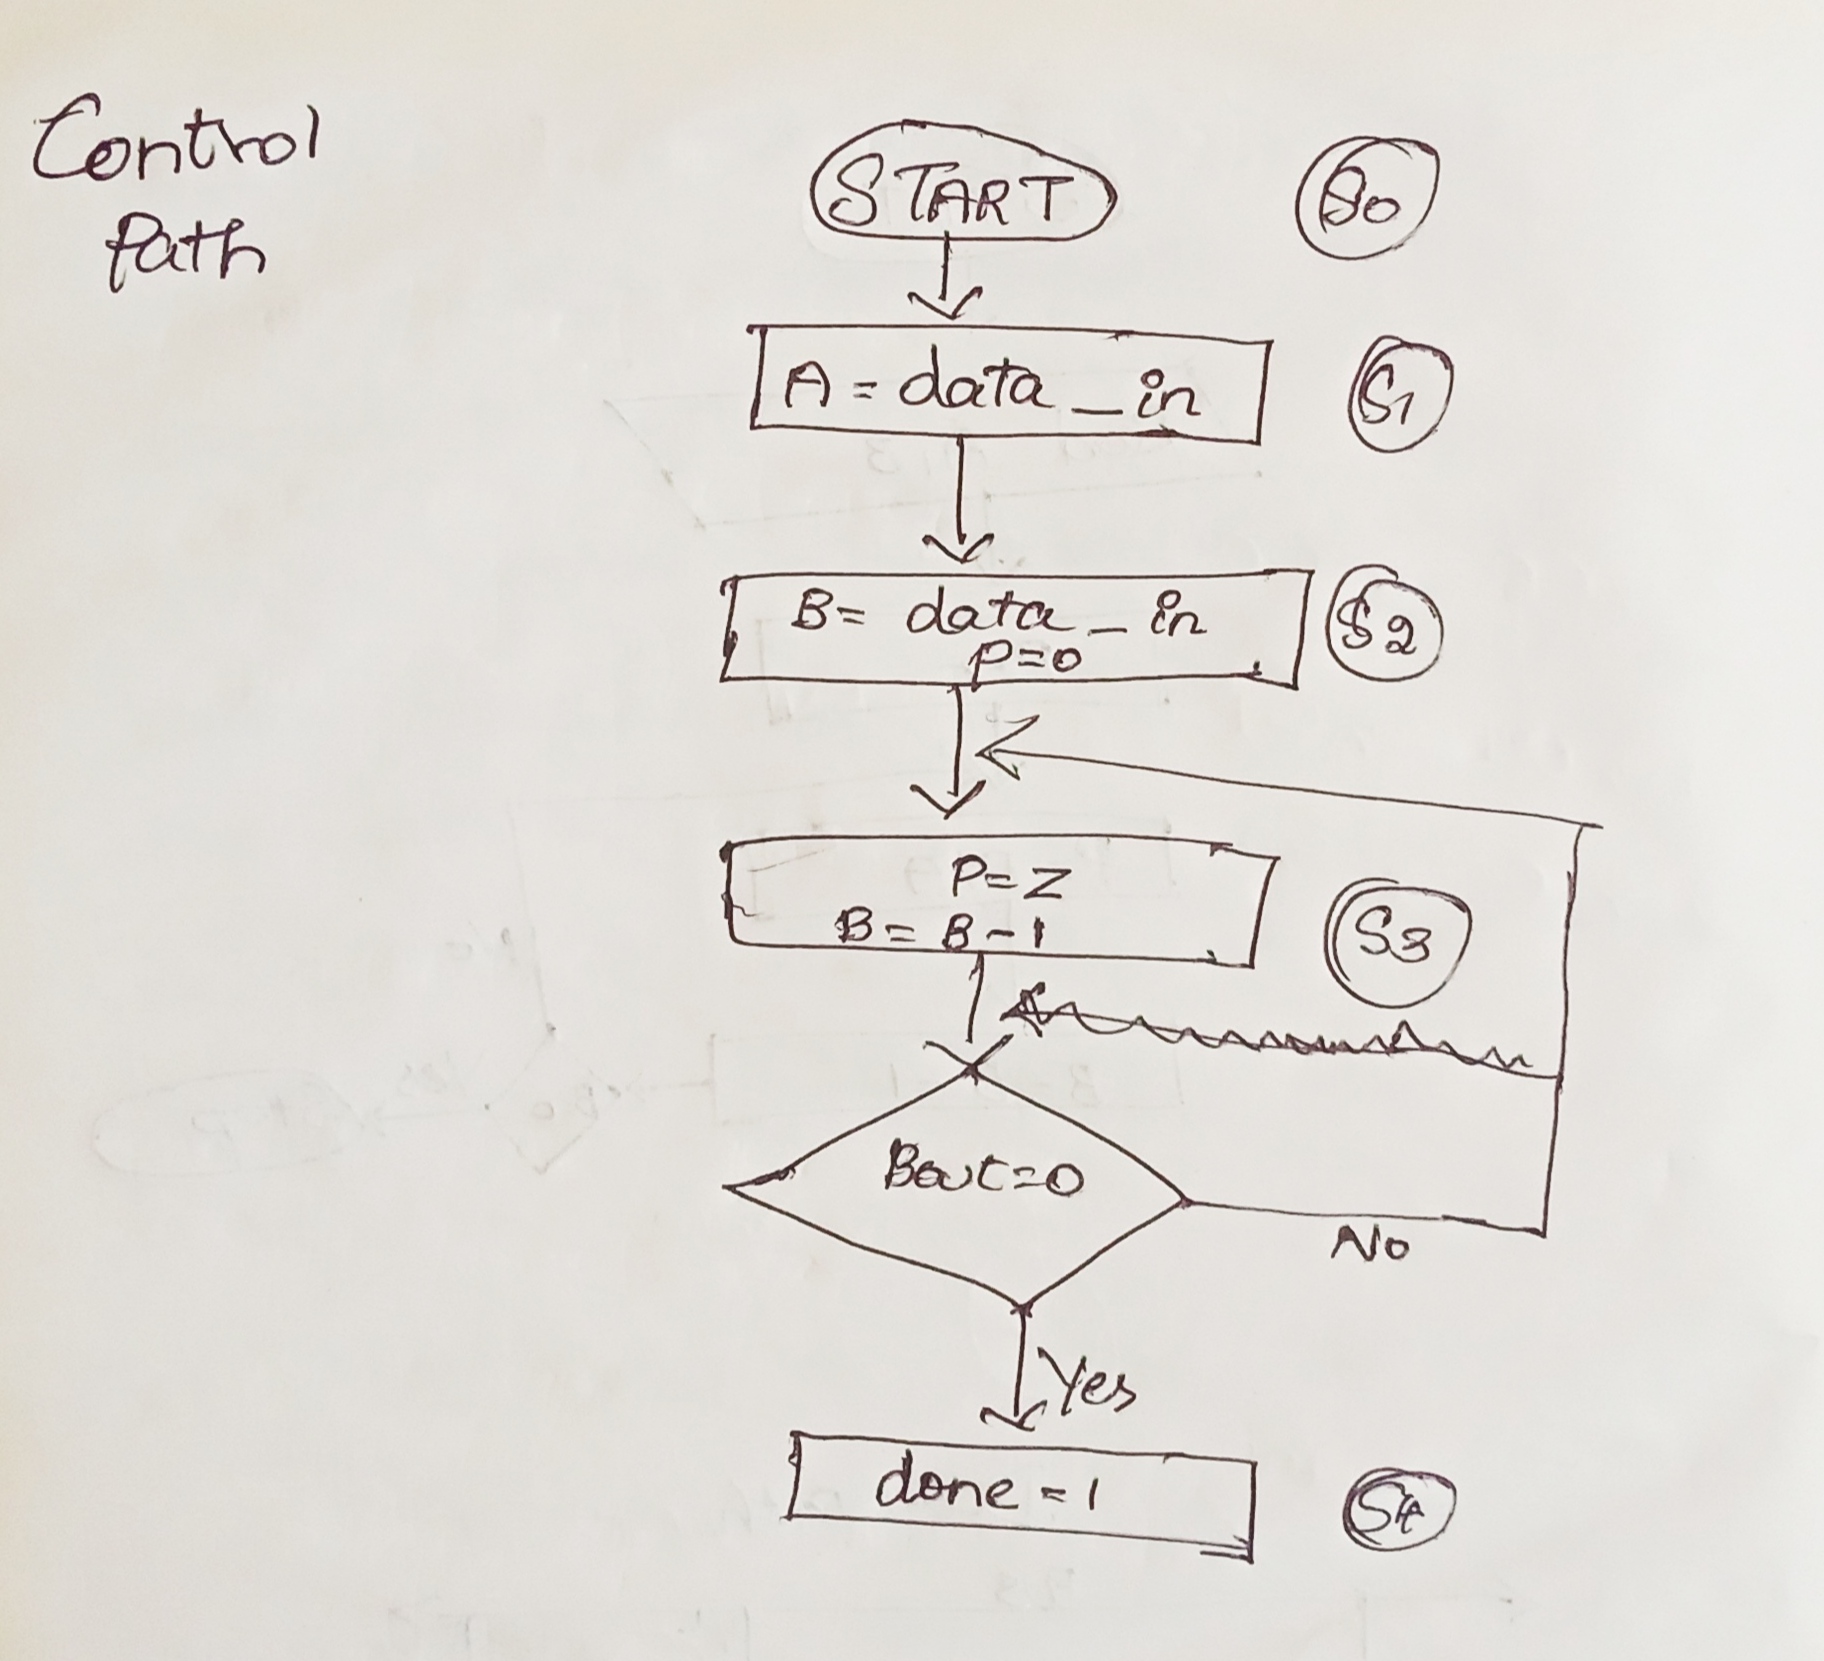 Control
Path
START
S0
A = data_in
S1
B = data_in
P=0
S2
P=Z
B = B-1
S3
Bout=0
No
Yes
done = 1
S4